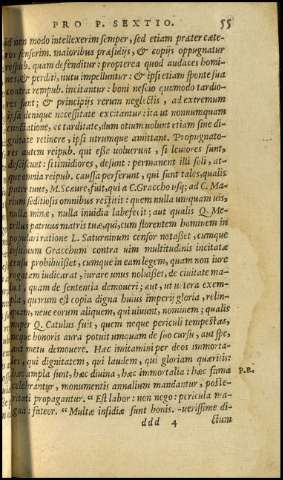 PRO P. SEXTIO. 55
non modo intellexerim semper, sed etiam præter cæte-
ros senserim. maioribus præsidijs, & copijs oppugnatur
respub. quam defenditur: propterea quod audaces homi-
nes, & perditi, nutu impelluntur: & ipsi etiam sponte sua
contra rempub. incitantur: boni nescio quomodo tardio-
res sunt; & principijs rerum neglectis, ad extremum
ipsa denique necessitate excitantur: ita ut nonnunquam
cunctatione, et tarditate, dum otium uolunt etiam sine di-
gnitate retinere, ipsi utrumque amittant. Propugnato-
res autem reipub. qui esse uoluerunt, si leuiores sunt,
desciscunt: si timidiores, desunt: permanent illi soli, at-
que omnia reipub. causa perferunt, qui sunt tales, qualis
pater tuus, M. Scaure, fuit, qui à C. Graccho usq; ad C. Ma-
rium seditiosis omnibus restitit: quem nulla unquam uis,
nullæ minæ, nulla inuidia labefecit: aut qualis Q. Me-
tellus patruus matris tuæ, qui, cum florentem hominem in
populari ratione L. Saturninum censor notasset, cumque
insitiuum Gracchum contra uim multitudinis incitatæ
censu prohibuisset, cumque in eam legem, quam non iure
rogatam iudicarat, iurare unus noluisset, de ciuitate ma-
luit, quam de sententia demoueri; aut, ut uetera exem-
pla, quorum est copia digna huius imperij gloria, relin-
quam, neue eorum aliquem, qui uiuunt, nominem; qualis
nuper Q. Catulus fuit, quem neque periculi tempestas,
neque honoris aura potuit umquam de suo cursu, aut spe,
aut metu demouere. Hæc imitamini per deos immorta-
les, qui dignitatem, qui laudem, qui gloriam quæritis:
hæc ampla sunt, hæc diuina, hæc immortalia: hæc fama P.B.
celebrantur, monumentis annalium mandantur, poste-
ritati propagantur. “Est labor: non nego: pericula ma-
gna: fateor. “Multæ insidiæ sunt bonis. -uerissime di-
ddd 4 ctum